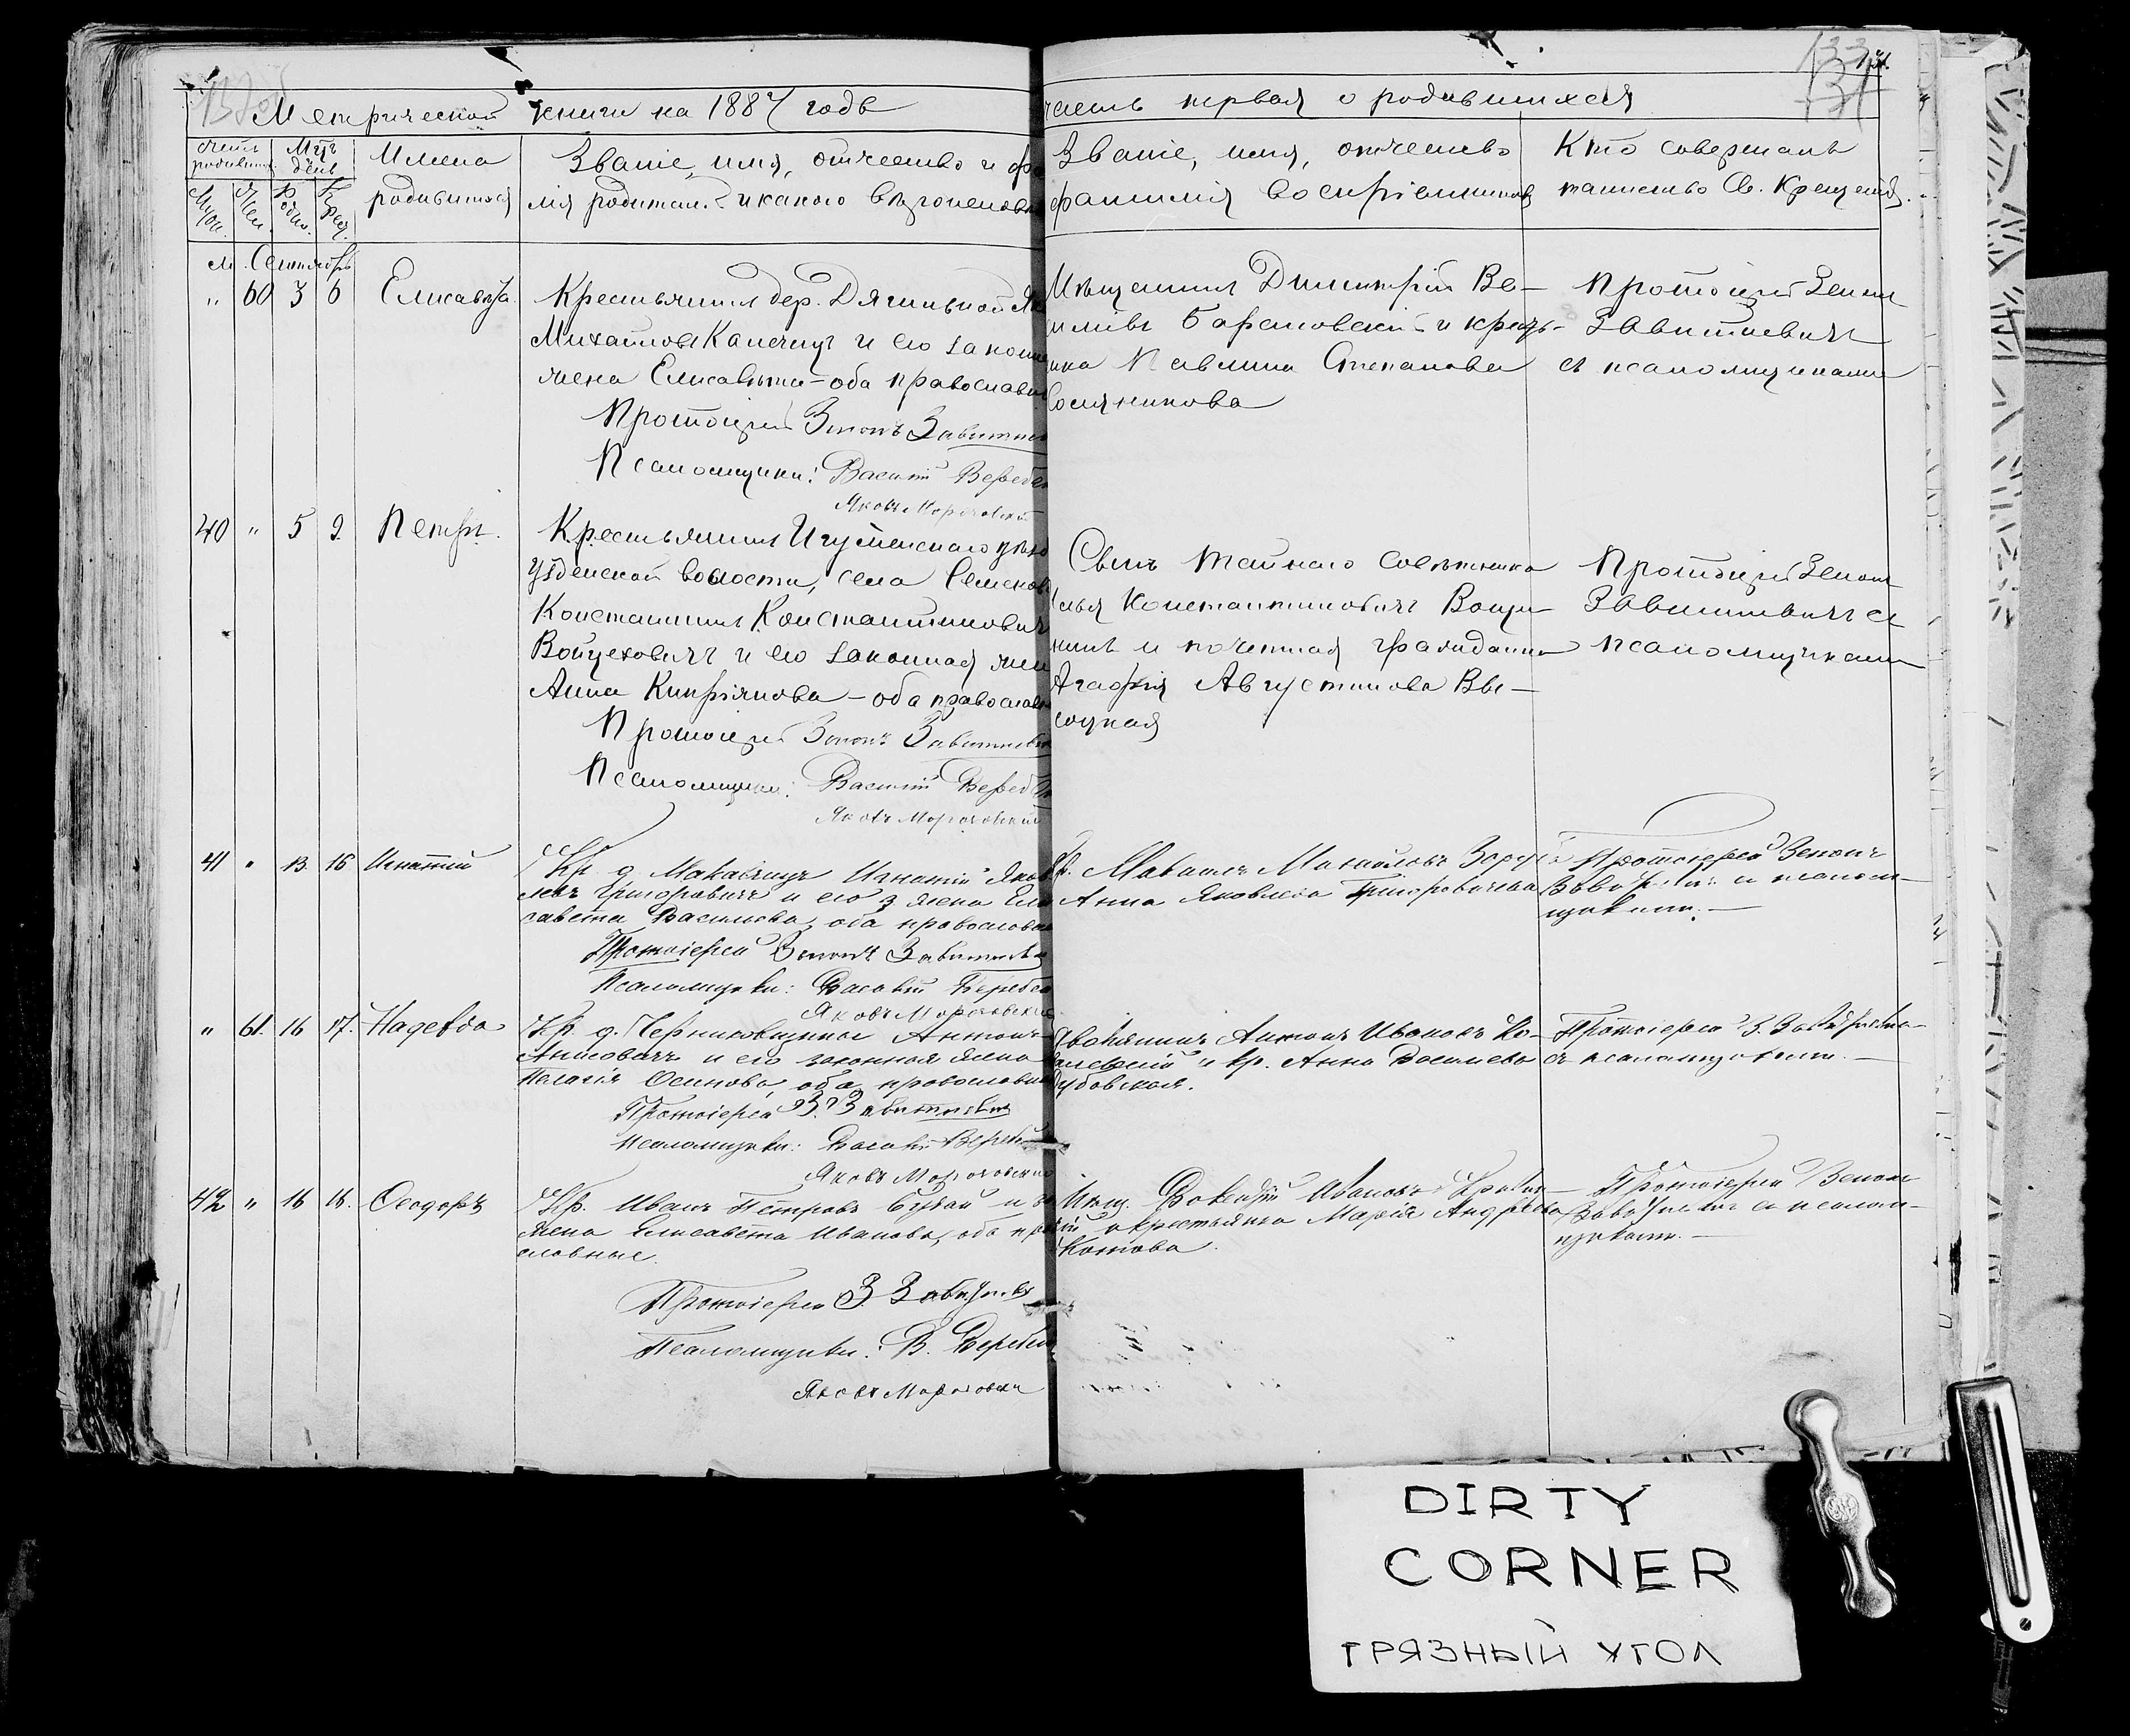 133
131
Метрической книги на 1887 годъ
часть первая о родившихся
Счетъ родивших.
Мцъ день
Муж. Жен. Родн. Крещ.
Имена родившихся
Званіе, имя, отчество и фа
мія родител. и какого вѣроисповѣ
Званіе, имя, отчество
фамилія воспріемниковъ
Кто совершалъ
таинство Св. Крещенія.
М. Сентябрь
" 60 3 6 Елисавета
Крестьянинъ дер.
Михайловъ Капечиуъ и его законн
жена Елисавета - оба православн
Протоіерей Зенонъ Завитнев
Псаломщики: Василій Веребе
Яковъ Мороховскій
Мѣщанинъ Димитрій Ва-
сильевъ Барановскій и кресть-
янка Павлина Степанова
Протоіерей Зенонъ
Завитневичъ
съ псаломщиками
40 " 5 9. Петръ.
Крестьянинъ Игуменскаго уѣзд
Узденской волости, села
Константинъ Константиновичъ
Войцеховичъ и его законная жен
Анна Кипріянова - оба православн
Протоіерей Зенонъ Завитневи
Псаломщики: Василій Веребе
Яковъ Мороховскій
Сынъ тайнаго Совѣтника
Илья Константиновичъ Вощи-
нинъ и почетная гражданка
Агафія Августинова Вы-
соцкая
Протоіерей Зенонъ
Завитневичъ съ
псаломщиками
41 " 13. 16 Игнатій
Кр. д. Макавчицъ Игнатій Яков
левъ Григоровичъ и его з. жена Ели
савета Василева, оба православн
Протоіерей Зенонъ Завитневи
Псаломщики: Василій Веребе
Яковъ Мороховскій
Кр. Михайловъ
Анна Яковлева Григоровичева
Протоіерей Зенонъ
Завитневичъ съ псалом-
щиками. —
" 61. 16 17. Надежда
Кр. д. Черниковщины Антонъ
и его законная жена
Пелагія Осипова, оба православн
Протоіерей З. Завитневичъ
Псаломщики: Василій Вереб
Яковъ Мороховскій
дворянинъ Антонъ Ивановъ Ко-
валевскій и кр. Анна Василева
Дубовская.
Протоіерей З. Завитневи-
съ псаломщиками. —
42 " 16 16. Ѳеодоръ
Кр. Иванъ Петровъ и з
жена Елисавета Иванова, оба пра
славные.
Протоіерей З. Завитнев
Псаломщики: В. Вереб
Яковъ Мороховскі
Мѣщ. Ивановъ
и крестьянка Марія Андреева
Котова.
Протоіерей Зенонъ
Завитневичъ съ псалом-
щиками. —
DIRTY
CORNER
ГРЯЗНЫЙ УГОЛ